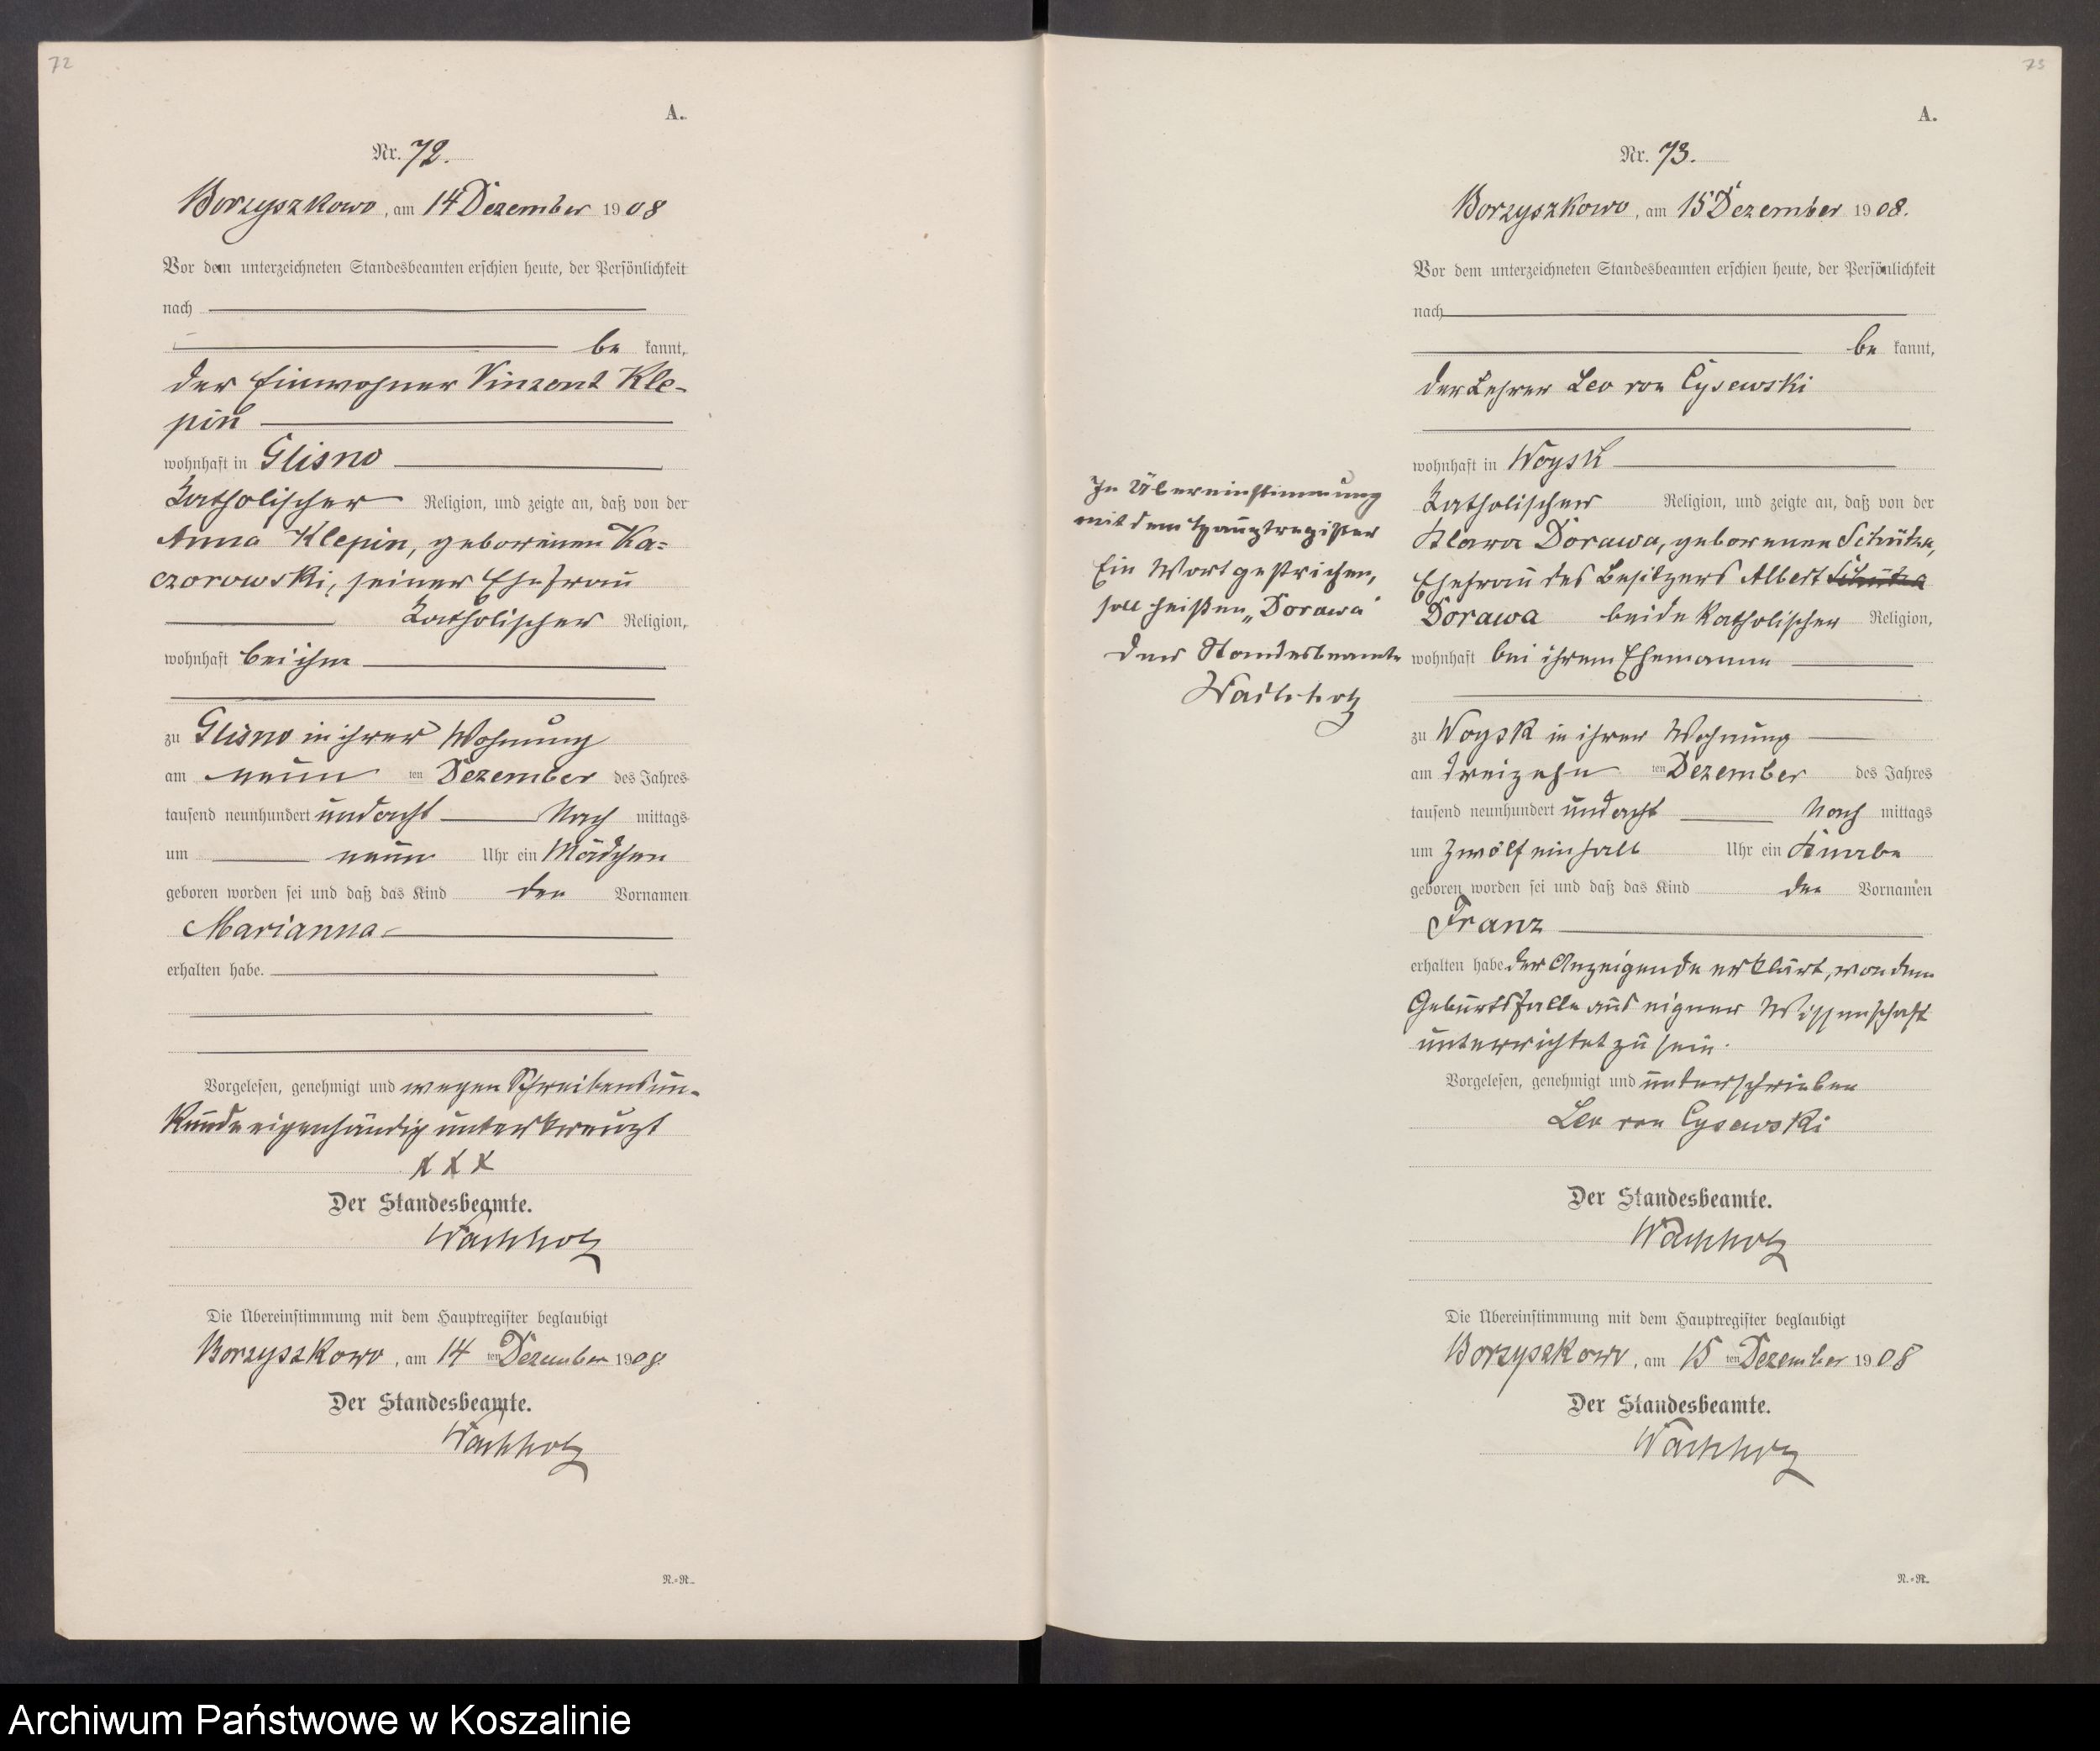 72
A.
Nr. 72.
Borzyszkowo, am 14 Dezember 1908
Vor dem unterzeichneten Standesbeamten erschien heute, der Persönlichkeit
nach
be kannt,
der Einwohner Vinzent Kle-
pin
wohnhaft in Glisno
katholischer Religion, und zeigte an, daß von der
Anna Klepin, geborenen Ka=
czorowski, seiner Ehefrau
katholischer Religion,
wohnhaft bei ihm
zu Glisno in ihrer Wohnung
am neun ten Dezember des Jahres
tausend neunhundert undacht Nach mittags
um neun Uhr ein Mädchen
geboren worden sei und daß das Kind den Vornamen
Marianna
erhalten habe.
Vorgelesen, genehmigt und wegen Schreibensun-
kunde eigenhändig unterkreuzt
X X X
Der Standesbeamte.
Wachholz
Die Übereinstimmung mit dem Hauptregister beglaubigt
Borzyszkowo, am 14 ten Dezember 1908.
Der Standesbeamte.
Wachholz
N.=R.
73
A.
Nr. 73.
Borzyszkowo, am 15 Dezember 1908.
Vor dem unterzeichneten Standesbeamten erschien heute, der Persönlichkeit
nach
be kannt,
der Lehrer Leo von Cysewski
wohnhaft in Woysk
katholischer Religion, und zeigte an, daß von der
Klara Dorawa, geborenen Schütza,
Ehefrau des Besitzers Albert Schütza
Dorawa beide katholischer Religion,
wohnhaft bei ihrem Ehemanne
zu Woysk in ihrer Wohnung
am dreizehn ten Dezember des Jahres
tausend neunhundert undacht Nach mittags
um zwölfeinhalb Uhr ein Knabe
geboren worden sei und daß das Kind den Vornamen
Franz
erhalten habe. Der Anzeigende erklärt, von dem
Geburtsfalle aus eigner Wissenschaft
unterrichtet zu sein.
Vorgelesen, genehmigt und unterschrieben
Leo von Cysewski
Der Standesbeamte.
Wachholz
Die Übereinstimmung mit dem Hauptregister beglaubigt
Borzyszkowo, am 15 ten Dezember 1908
Der Standesbeamte.
Wachholz
N.=R.
In Übereinstimmung
mit dem Hauptregister
Ein Wort gestrichen,
soll heißen „Dorawa"
Der Standesbeamte
Wachholz
Archiwum Państwowe w Koszalinie